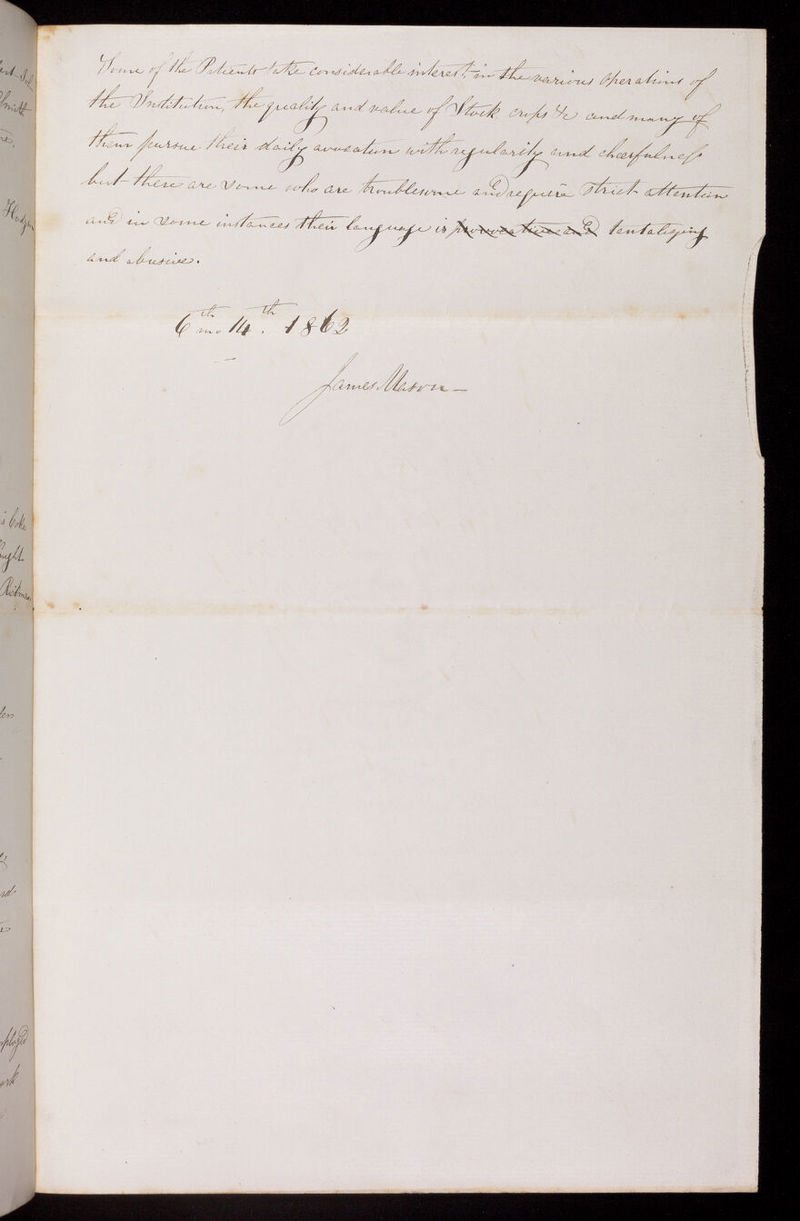 Some of the Patients take considerable interest in the various Operations of
the Institution, the quality and value of Stock crops &c and many of
them pursue their daily avocation with regularity and cheerfulness
but there are some who are troublesome and require strict attention
and in some instances their language is provocative and tantalizing
and abusive.
6th mo 14th. 1862
James Mason